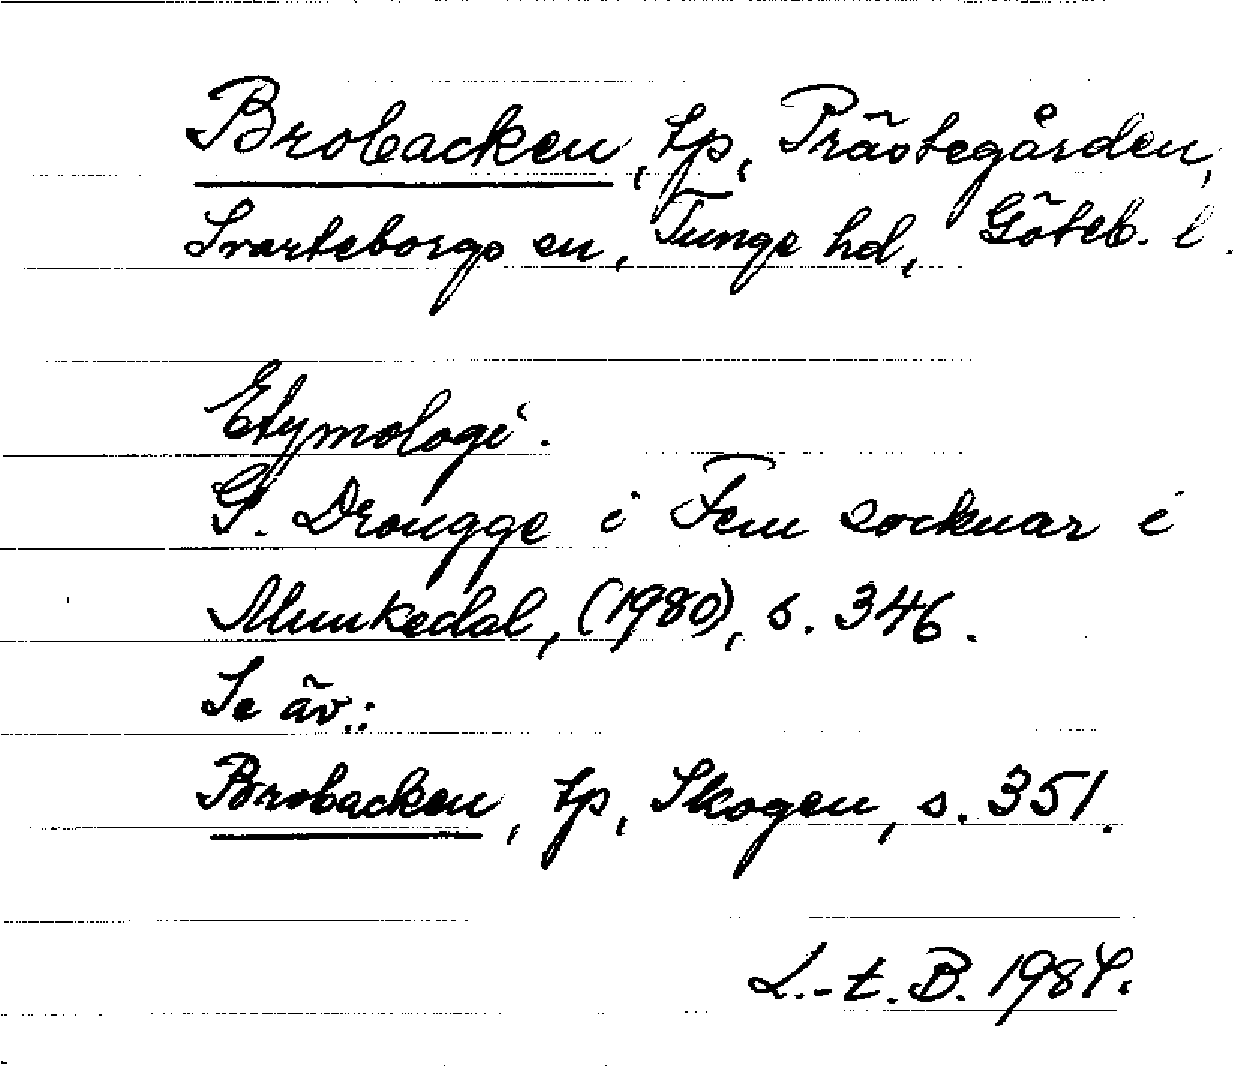 Brobacken, tp, Prästegården,
Svarteborgs sn, Tunge hd, Göteb. l.
Etymologi.
G. Drougge i Fem socknar i
Munkedal, (1980), s. 346.
Se äv.:
Brobacken, tp, Skogen, s. 351.
L.-t. B. 1984.